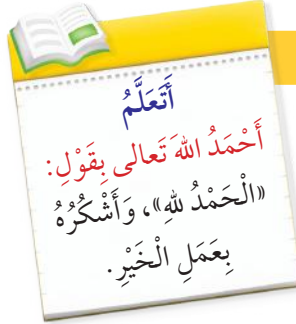 أَتَعَلَّمُ
أَحْمَدُ اللهَ تَعالى بِقَوْلِ:
«الْحَمْدُ للهِ»، وَأَشْكُرُهُ
بِعَمَلِ الْخَيْرِ.